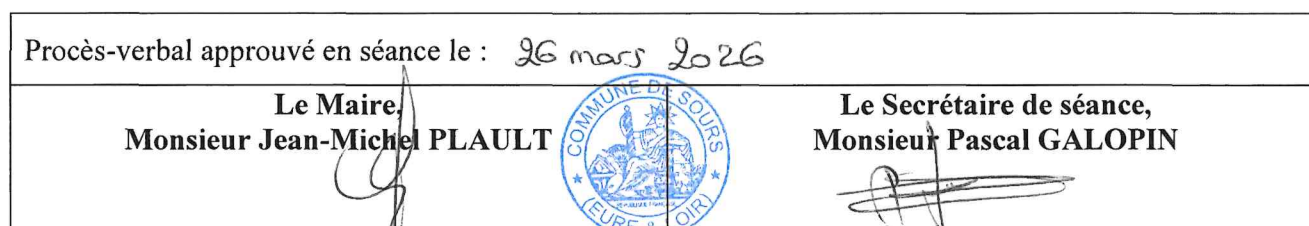 Procès-verbal approuvé en séance le : 26 mars 2026
Le Maire,
Monsieur Jean-Michel PLAULT
COMMUNE DE SOURS
RÉPUBLIQUE FRANÇAISE
(EURE & LOIR)
Le Secrétaire de séance,
Monsieur Pascal GALOPIN